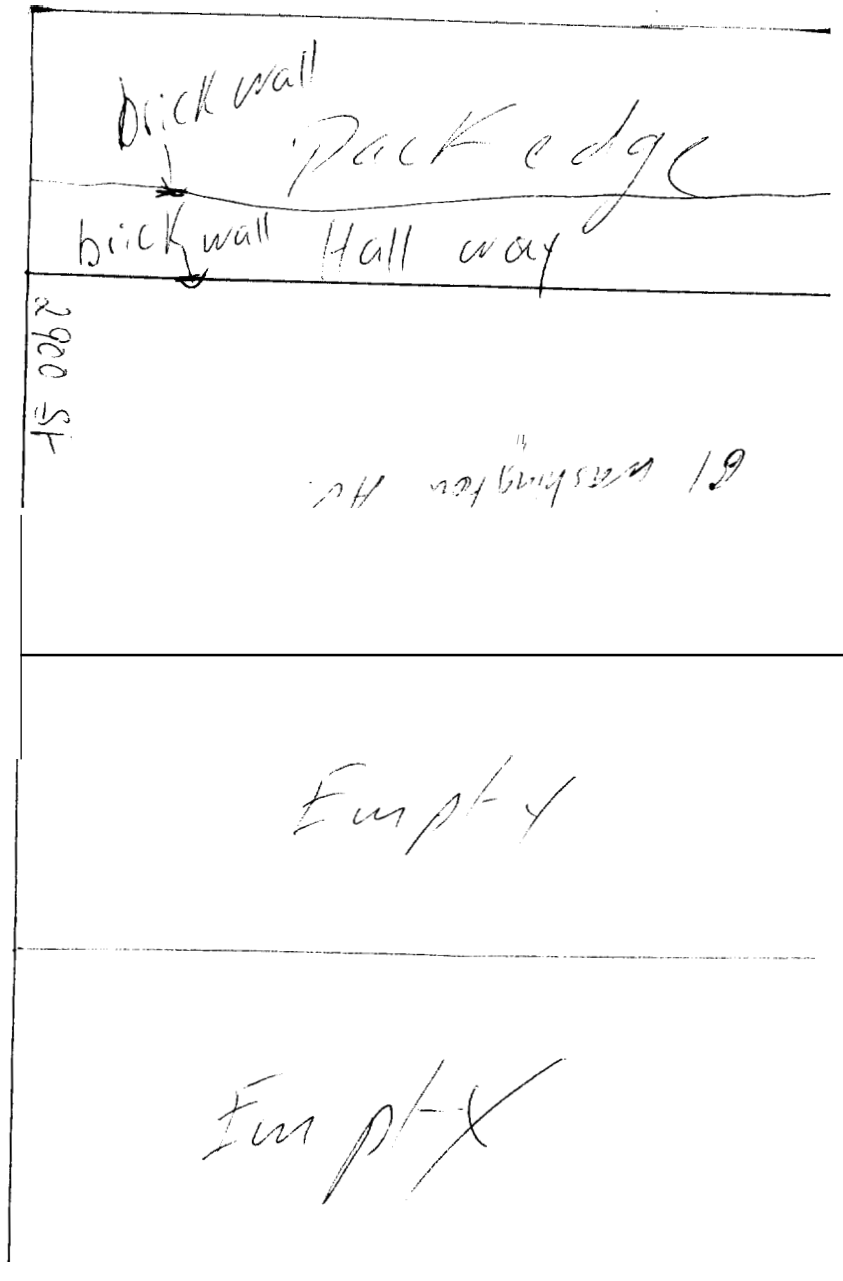 brick wall
Pack edge
brick wall Hall way
2900 sf
61 washington Av.
Empty
Empty